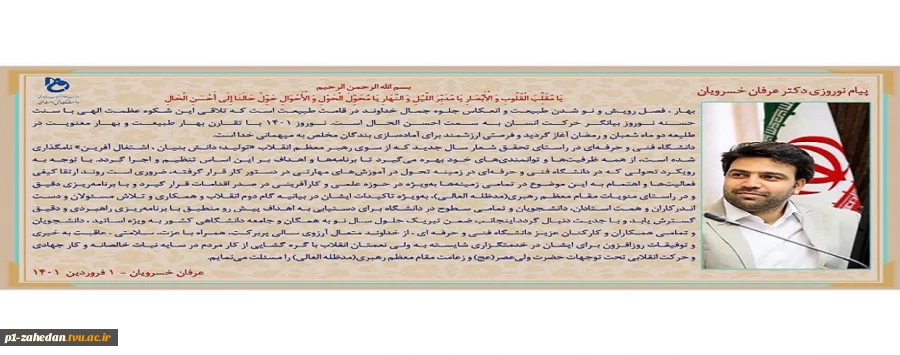 پیام نوروزی دکتر عرفان خسرویان
بسم الله الرحمن الرحیم
یَا مُقَلِّبَ الْقُلُوبِ وَ الْأَبْصَارِ یَا مُدَبِّرَ اللَّیْلِ وَ النَّهَارِ یَا مُحَوِّلَ الْحَوْلِ وَ الْأَحْوَالِ حَوِّلْ حَالَنَا إِلَى أَحْسَنِ الْحَالِ
بهار، فصل رویش و نو شدن طبیعت و انعکاس جلوه جمال خداوند در قامت طبیعت است که تلاقی این شکوه عظمت الهی با سنت
حسنه نوروز بیانگر حرکت انسان به سمت احسن الحال است. نوروز ۱۴۰۱ با تقارن بهار طبیعت و بهار معنویت در
طلیعه دو ماه شعبان و رمضان آغاز گردید و فرصتی ارزشمند برای آماده‌سازی بندگان مخلص به میهمانی خدا است.
دانشگاه فنی و حرفه‌ای در راستای تحقق شعار سال جدید که از سوی رهبر معظم انقلاب «تولید؛ دانش بنیان، اشتغال آفرین» نامگذاری
شده است، از همه ظرفیت‌ها و توانمندی‌های خود بهره می‌گیرد تا برنامه‌ها و اهداف بر این اساس تنظیم و اجرا گردد. با توجه به
رویکرد تحولی که در دانشگاه فنی و حرفه‌ای در زمینه تحول در آموزش‌های مهارتی در دستور کار قرار گرفته، ضروری است روند ارتقا کیفی
فعالیت‌ها و اهتمام به این موضوع در تمامی زمینه‌ها به‌ویژه در حوزه علمی و کارآفرینی در صدر اقدامات قرار گیرد و با برنامه‌ریزی دقیق
و در راستای منویات مقام معظم رهبری(مدظله العالی)، به‌ویژه تاکیدات ایشان در بیانیه گام دوم انقلاب و همکاری و تلاش مسئولان و دست
اندرکاران و همت استادان، دانشجویان و تمامی سطوح در دانشگاه برای دستیابی به اهداف پیش رو منطبق با برنامه‌ریزی راهبردی و دقیق
گسترش یابد و با جدیت دنبال گردد.اینجانب ضمن تبریک حلول سال نو به همگان و جامعه دانشگاهی کشور به ویژه اساتید، دانشجویان
و تمامی همکاران و کارکنان عزیز دانشگاه فنی و حرفه ای، از خداوند متعال آرزوی سالی پربرکت، همراه با عزت، سلامتی، عاقبت به خیری
و توفیقات روزافزون برای ایشان در خدمتگزاری شایسته به ولی نعمتان انقلاب با گره گشایی از کار مردم در سایه نیات خالصانه و کار جهادی
و حرکت انقلابی تحت توجهات حضرت ولی‌عصر(عج) و زعامت مقام معظم رهبری(مدظله العالی) را مسئلت می‌نمایم.
عرفان خسرویان - ۱ فروردین ۱۴۰۱
p1-zahedan.tvu.ac.ir